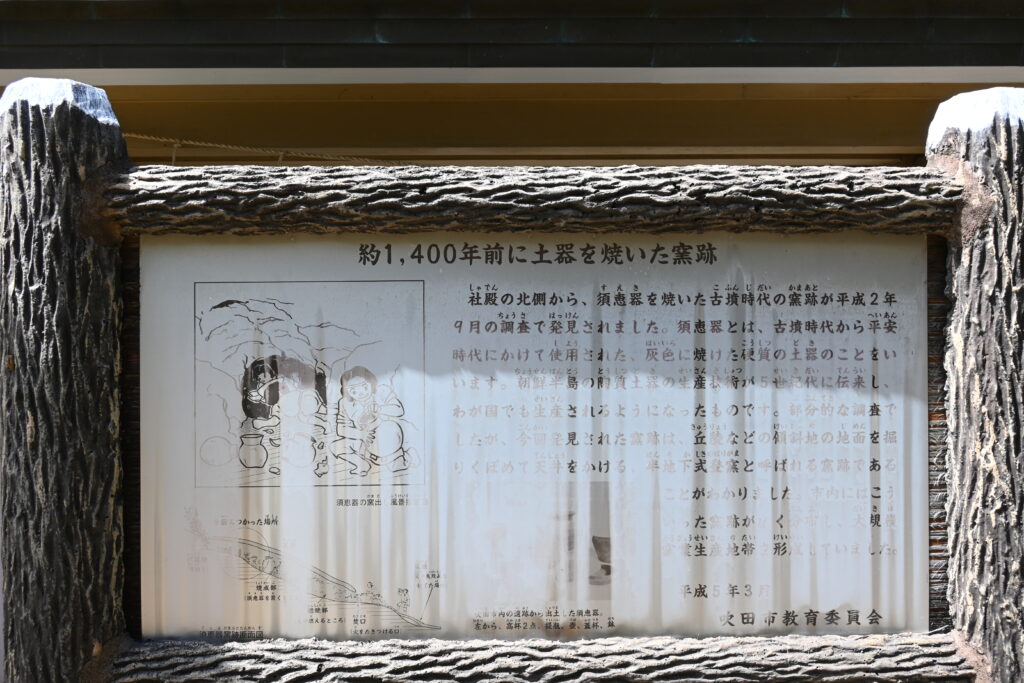 約1,400年前に土器を焼いた窯跡
社殿の北側から、須恵器を焼いた古墳時代の窯跡が平成2年
9月の調査で発見されました。須恵器とは、古墳時代から平安
時代にかけて使用された、灰色に焼けた硬質の土器のことをい
います。朝鮮半島の陶質土器の生産技術が5世紀代に伝来し、
わが国でも生産されるようになったものです。部分的な調査で
したが、今回発見された窯跡は、丘陵などの傾斜地の地面を掘
りくぼめて天井をかける、半地下式登窯と呼ばれる窯跡である
ことがわかりました。市内にはこう
した窯跡が
大規模
窯業生産地帯を形成していました。
平成5年3月
吹田市教育委員会
須恵器の窯出し風景
つかった場所
焼成部
燃焼部
焚口
(火をたきつける口)
須恵器窯跡断面図
吹田市内の遺跡から出土した須恵器。
左から、高杯2点、提瓶、壺、蓋杯、鉢